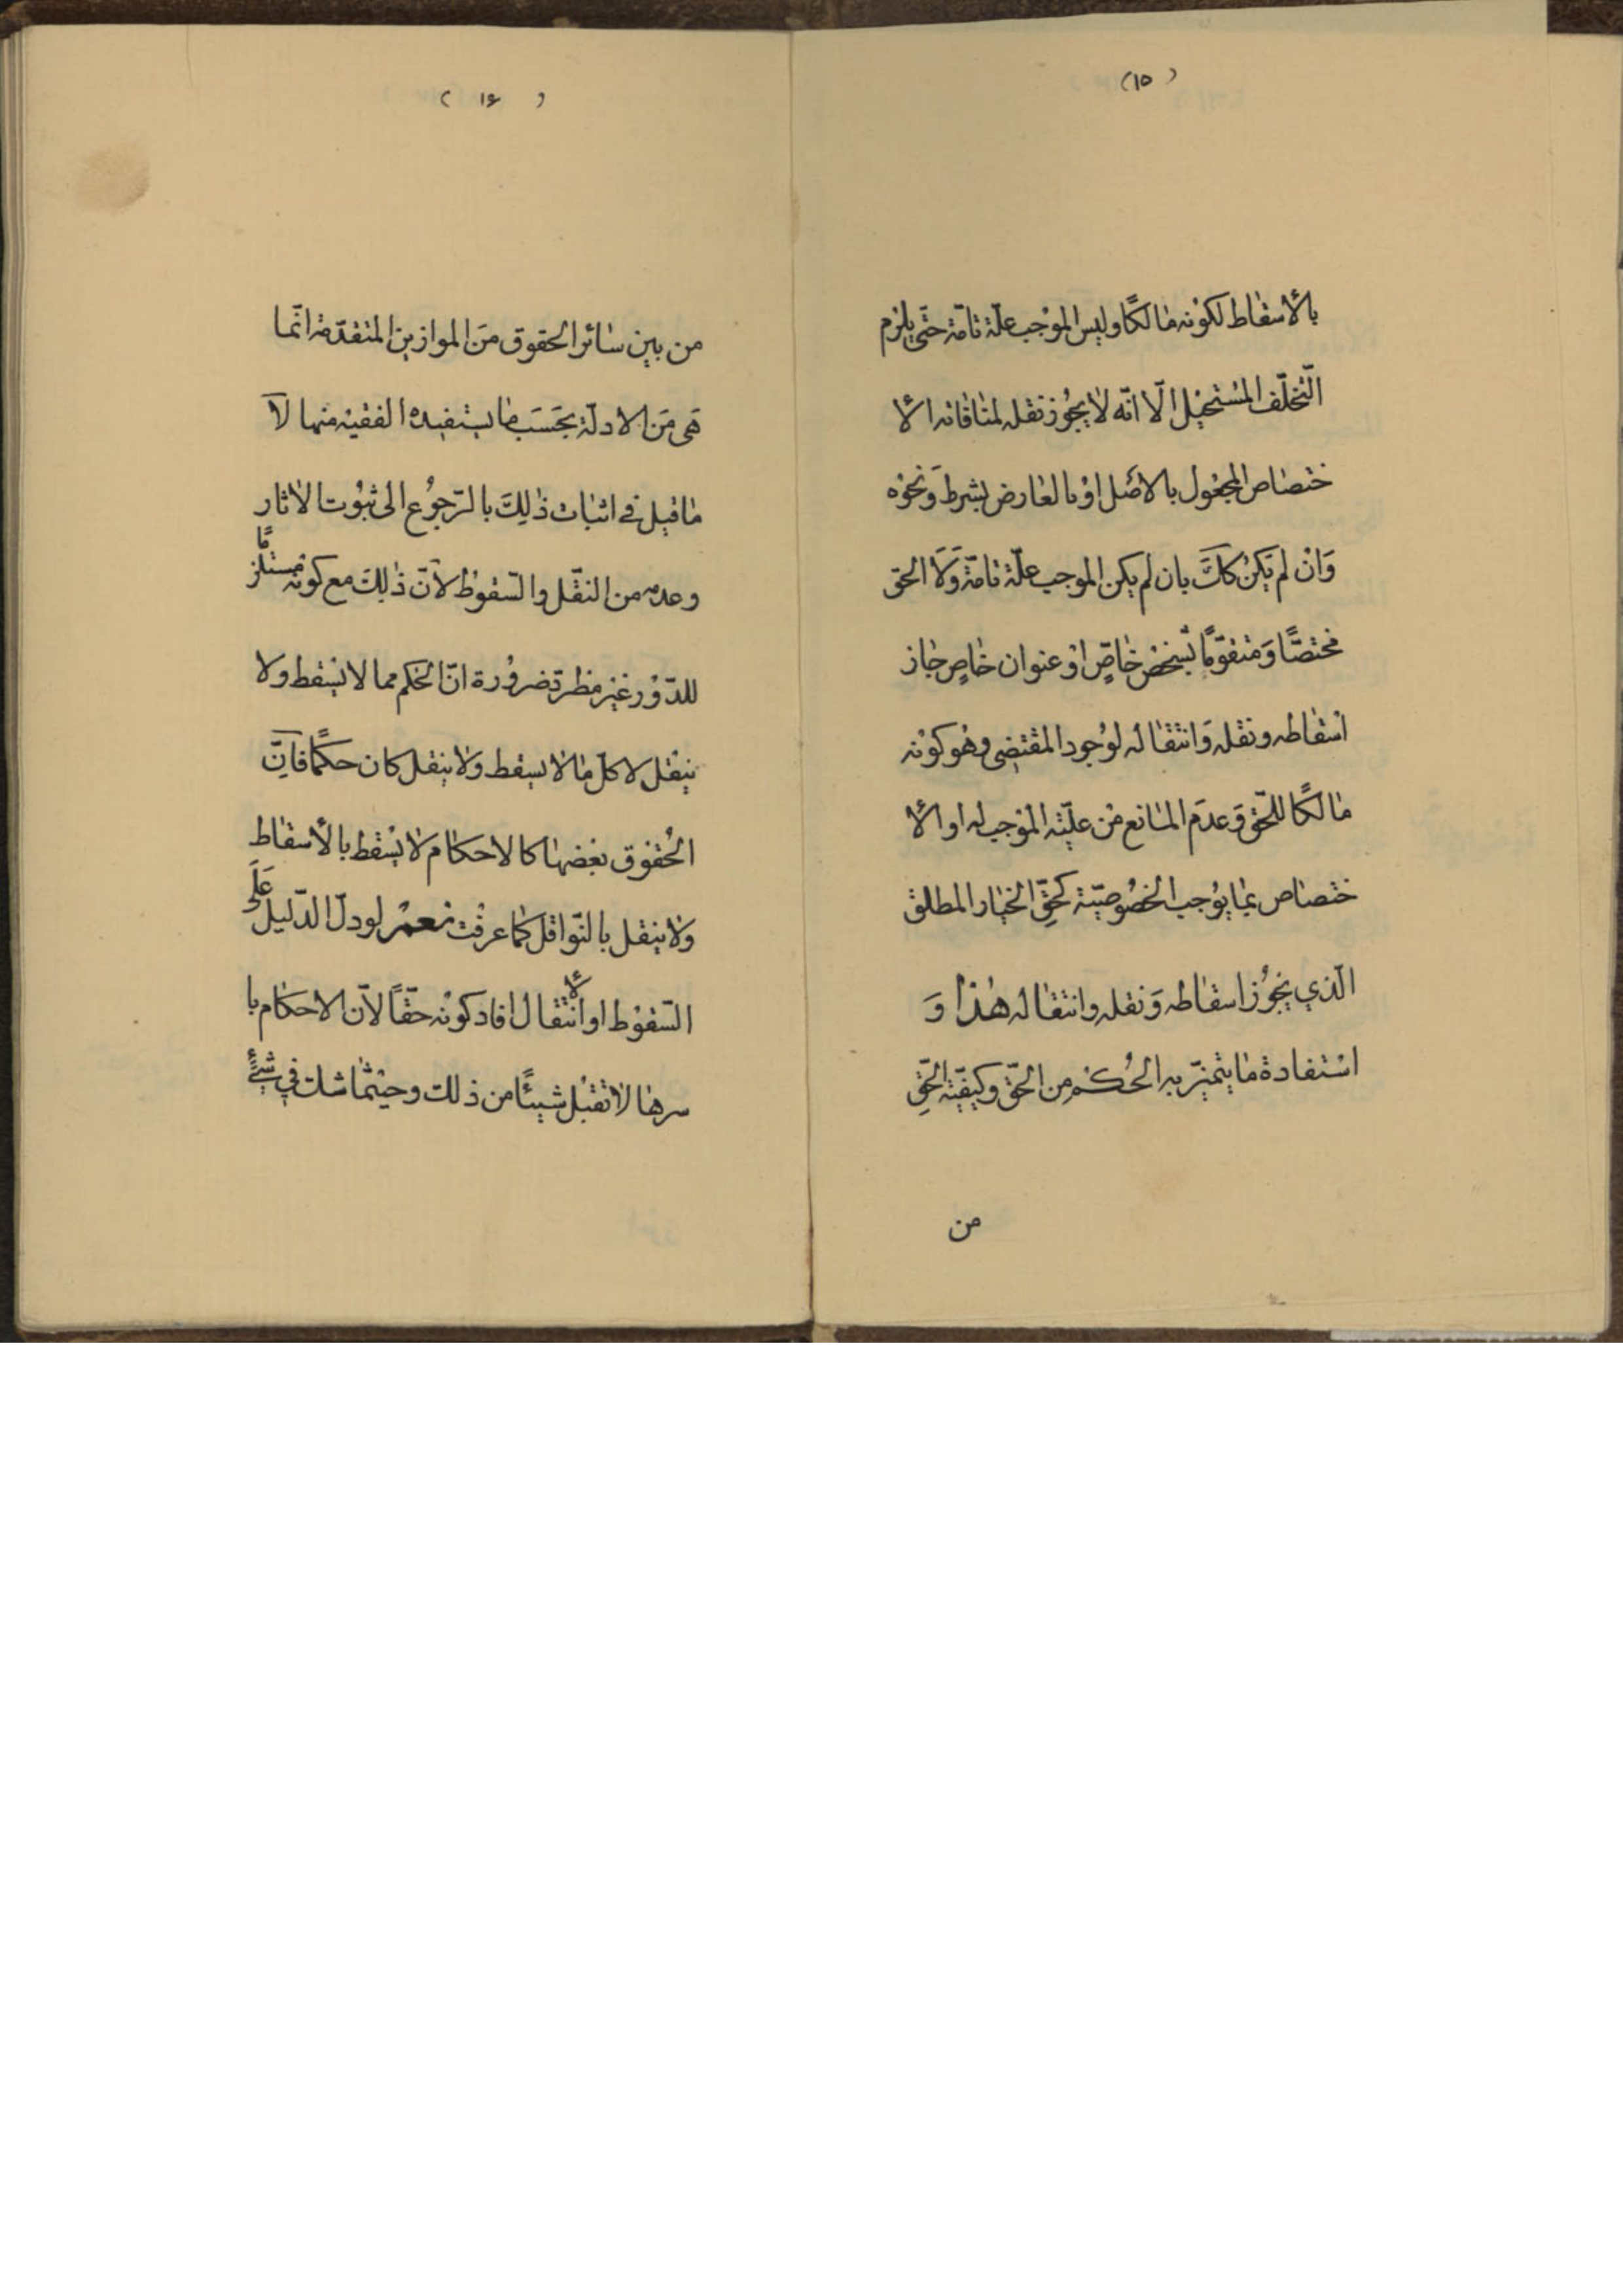 (١٥)
بالأسقاط لكونه مالكًا وليس الموجب علّة تامّة حتّى يلزم
التّخلّف المستحيل الّا انّه لا يجوز نقله لمنافاته الأ
ختصاص المجعول بالاصل او بالعارض بشرط ونحوه
وَان لم يكن كك بان لم يكن الموجب علّة تامّة وَلَا الحق
مختصًّا وَمتقوّمًا بشخص خاصّ او عنوان خاصٍ جاز
اسقاطه ونقله وَانتقاله لوجود المقتضى وهو كونه
مالكًا للحّق وَعدَم المانع من علّيّته الموجب له او الأ
ختصاص بما يوجب الخصوصيّة كحقّ الخيار المطلق
الّذي يجوز اسقاطه وَنقله وانتقاله هذا وَ
استفادة ما يتميّز به الحُكم من الحّق وكيفيّة الحّقِ
من
( ١۶ )
من بين سائر الحقوق مَن الموازين المتقدّمة انّما
هَى مَن الادلّة بحَسَب ما يستفيده الفقيه منها لا
ما قيل في اثبات ذلِكَ بالرّجوُع الى ثبوُت الاثار
وعدمه من النقّل والسّقوط لأنّ ذلِكَ مع كونه مستلزمًا
للدّوْر غير مطرّد ضروُرة انّ الحكم مما لا يسقط ولا
ينقل لا كلّ ما لا يسقط وَلا ينقل كان حكمًا فانّ
الحُقوق بعضها كالاحكام لا يسْقط بالأسقاط
وَلا ينقل بالنّواقل كما عرفْت نعم لو دلّ الدّليل عَلَى
السّقوْط او الأنتقال افاد كونْه حقّاً لأنّ الاحكام با
سرها لا تقبْل شيئًا من ذلك وحيثما شك في شئٍ